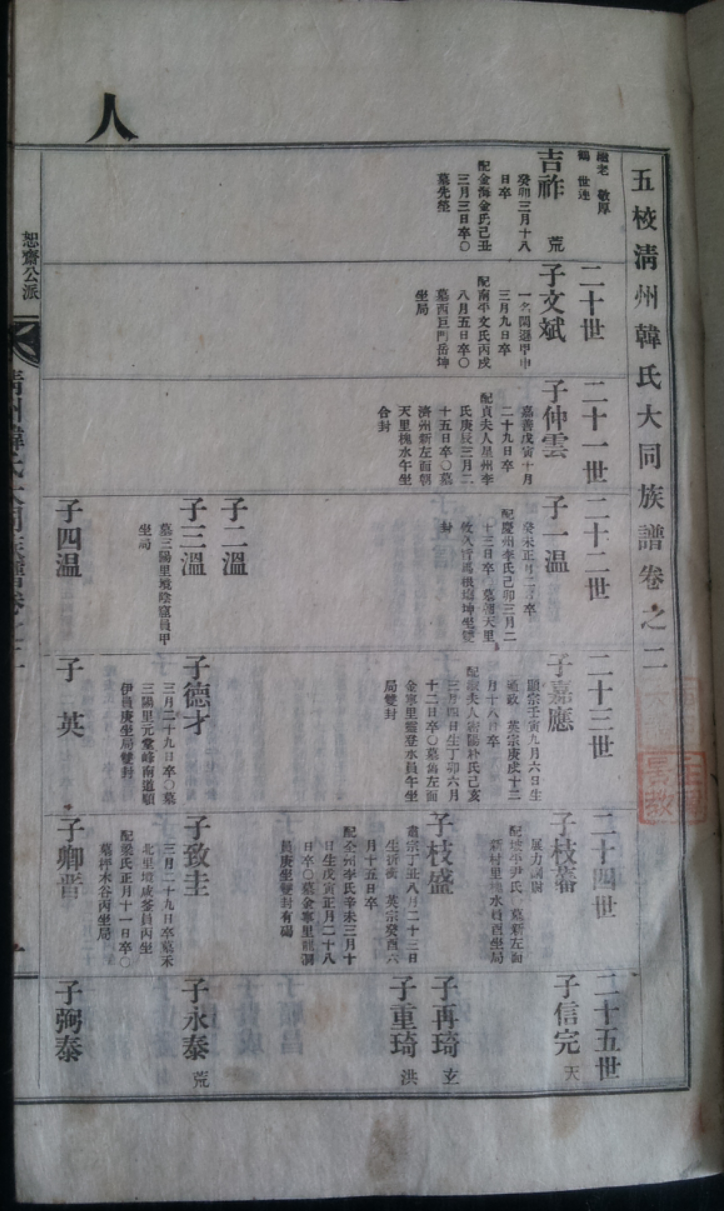 人
五校淸州韓氏大同族譜卷之二
敬厚
世逵
吉祚
荒
癸卯三月十八
日卒
配金海金氏己丑
三月三日卒〇
墓先塋
二十世
子文斌
三月九日卒
配南平文氏丙戌
八月五日卒〇
墓西巨門岳坤
坐局
二十一世
子仲雲
嘉善戊寅十月
二十九日卒
配貞夫人星州李
氏庚辰三月二
十五日卒〇墓
濟州新左面朝
天里槐水午坐
合封
二十二世
子一温
配慶州李氏己卯三月二
十三日卒
封
子二溫
子三溫
坐局
子四温
二十三世
子嘉應
顯宗壬寅九月六日生
通政 英宗庚戌十二
月十八日卒
三月四日生丁卯六月
十二日卒〇墓舊左面
金寧里靈登水員午坐
局雙封
子德才
三月二十九日卒〇墓
三陽里元堂峰南道順
伊員庚坐局雙封
子英
二十四世
子枝蕃
展力副尉
配坡平尹氏 墓新左面
新村里槐水員酉坐局
子枝盛
肅宗丁丑八月二十三日
生折衝 英宗癸酉六
月十五日卒
配全州李氏辛未三月十
日生戊寅正月二十八
日卒〇墓金寧里龍洞
員庚坐雙封有碣
子致圭
三月二十九日卒墓禾
北里墳成箁員丙坐
配梁氏正月十一日卒〇
墓枰木谷丙坐局
子卿晋
二十五世
子信完
天
子再琦
玄
子重琦
洪
子永泰
荒
子弼泰
恕齋公派